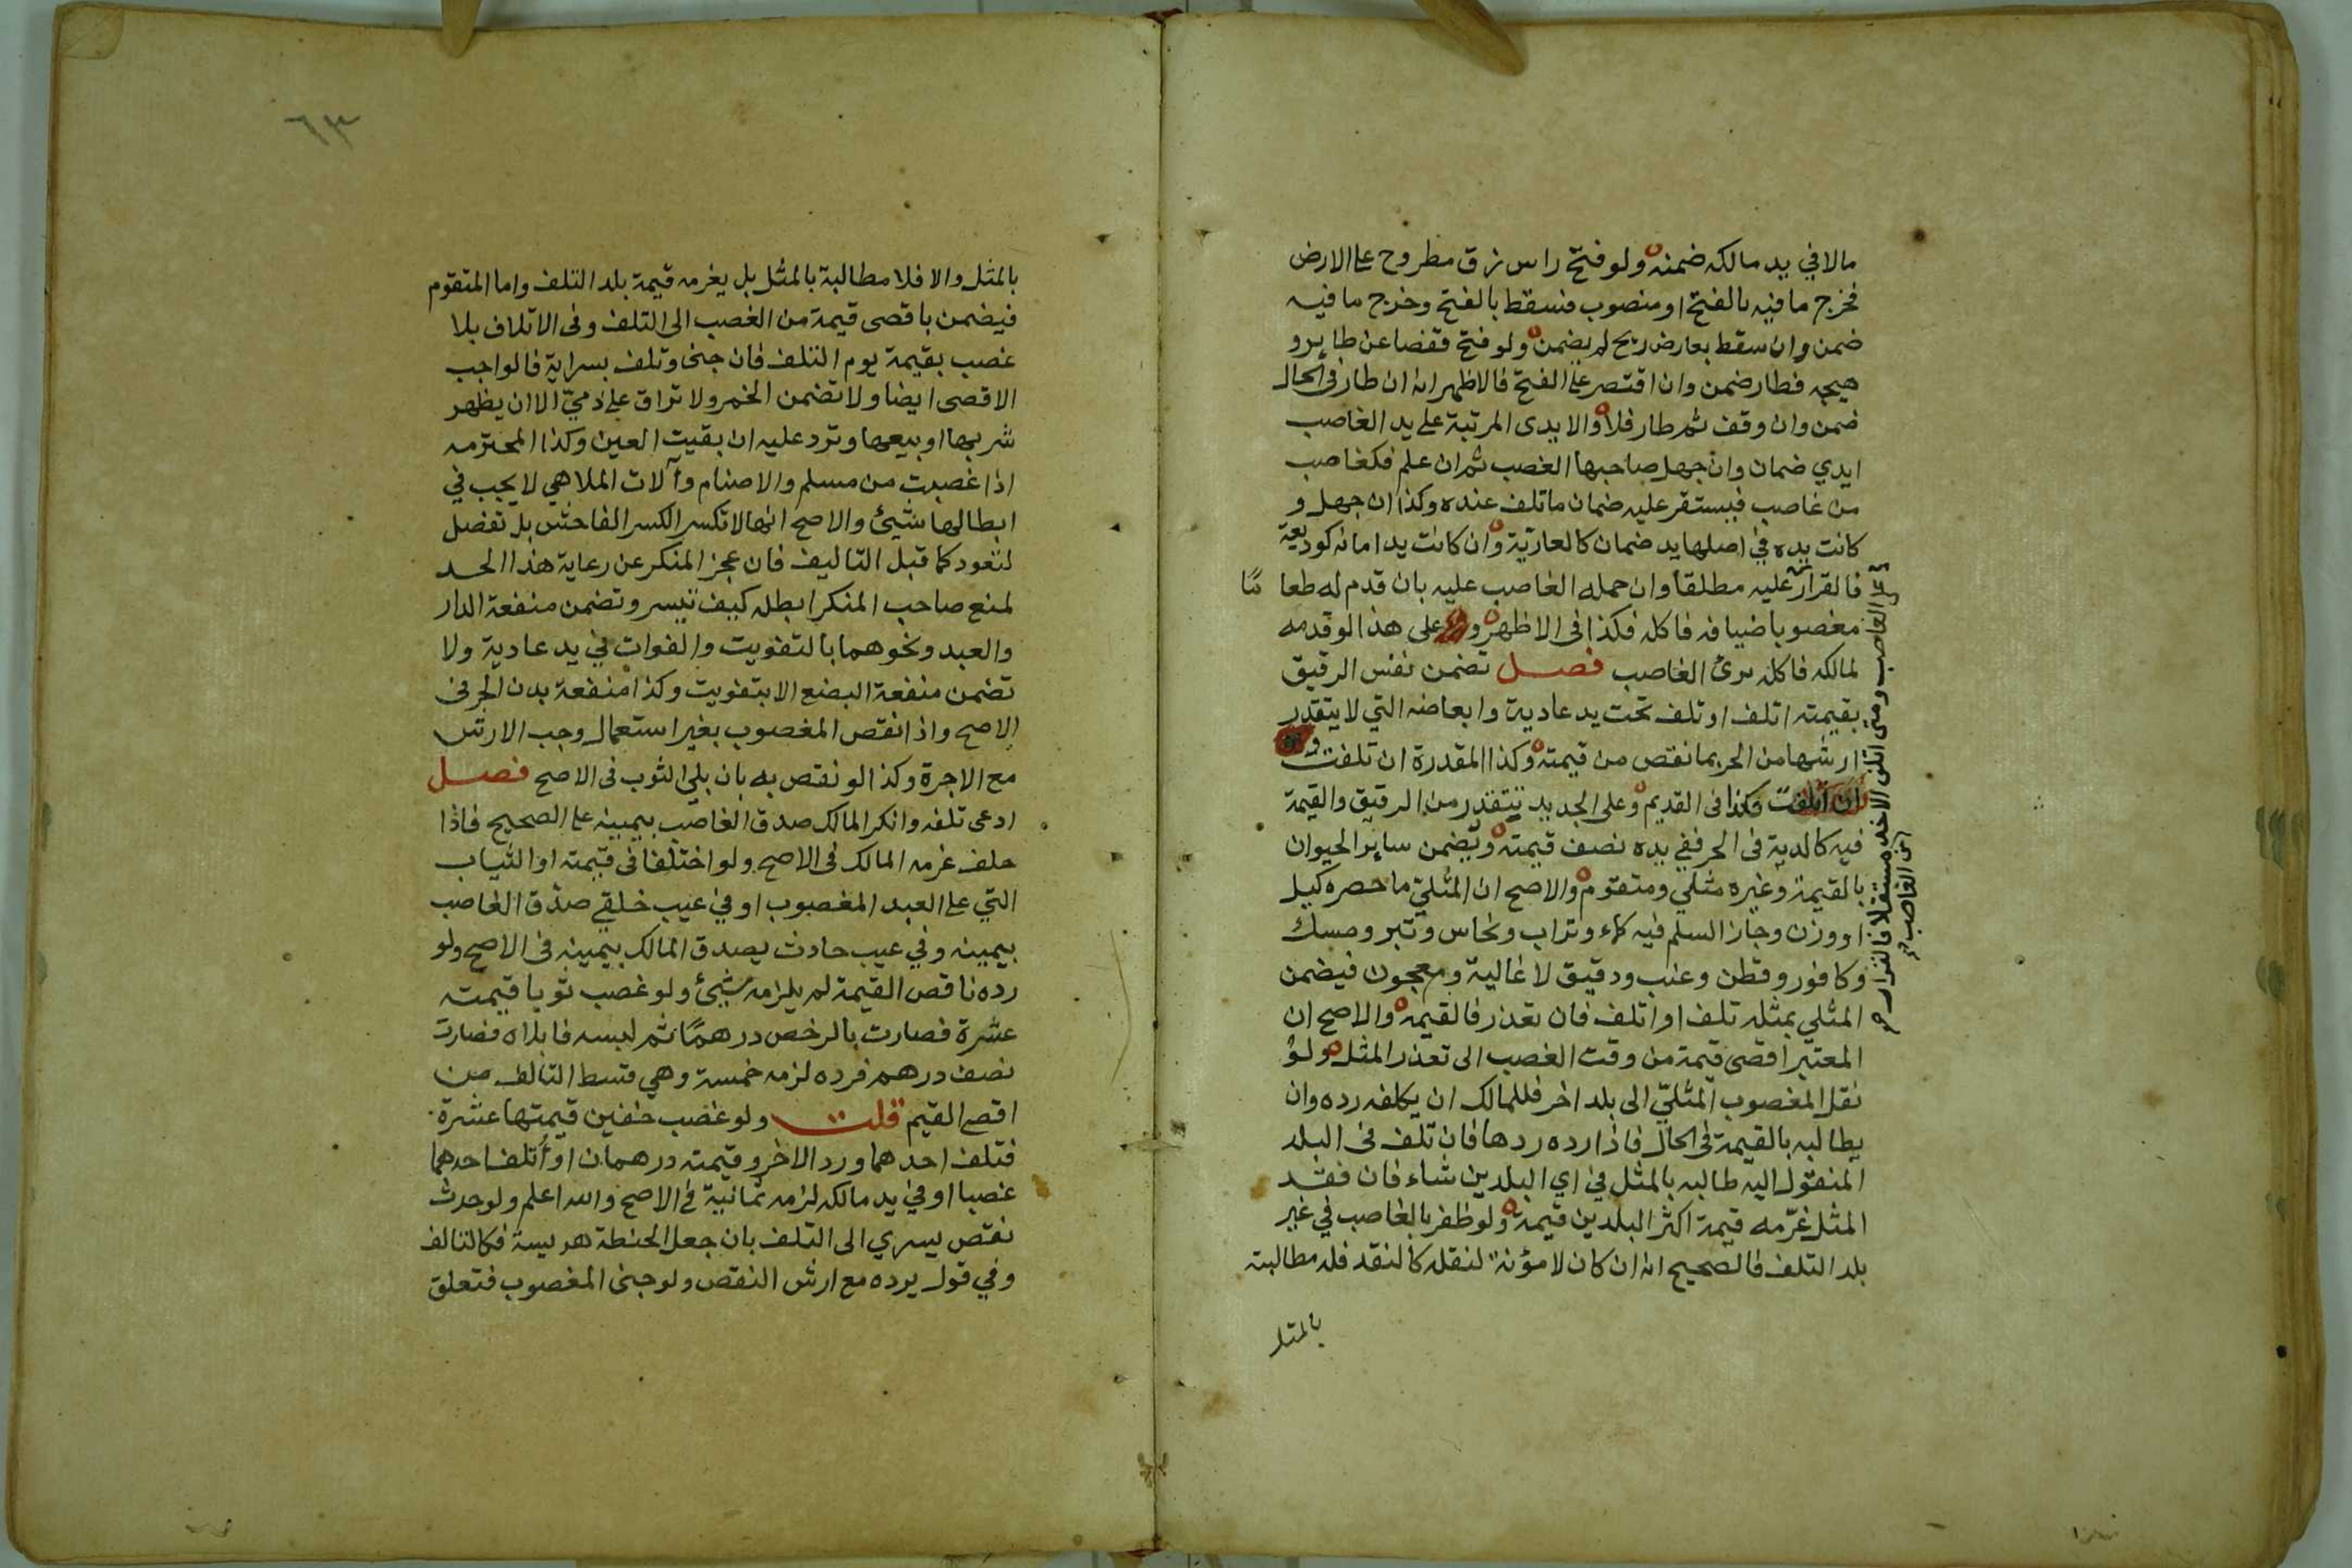 مالا في يد مالكه ضمنه ولو فتح راس زق مطروح على الارض
فخرج ما فيه بالفتح او منصوب فسقط بالفتح وخرج ما فيه
ضمن وان سقط بعارض ريح لم يضمن ولو فتح قفصا عن طاير و
هيجه فطار ضمن وان اقتصر على الفتح فالاظهر انه ان طار في الحال
ضمن وان وقف ثم طار فلا والايدى المرتبة على يد الغاصب
ايدي ضمان وان جهل صاحبها الغصب ثم ان علم فكغاصب
من غاصب فيستقر عليه ضمان ما تلف عنده وكذا ان جهل و
كانت يده في اصلها يد ضمان كالعارية وان كانت يد امانه كوديعة
فالقرار عليه مطلقا وان حمله الغاصب عليه بان قدم له طعا مًا
مغصوبا ضيافه فاكله فكذا فى الاظهر و على هذا لو قدمه
لمالكه فاكله برئ الغاصب فصل تضمن نفس الرقيق
بقيمته اتلف او تلف تحت يد عادية وابعاضه التي لا يتقدر
ارشها من الحر بما نقص من قيمته وكذا المقدرة ان تلفت و
ان اتلفت فكذا فى القديم وعلى الجديد تتقدر من الرقيق والقيمة
فيه كالدية فى الحر ففي يده نصف قيمته وتضمن ساير الحيوان
بالقيمة وغيره مثلي ومتقوم والاصح ان المثليّ ما حصره كيل
او وزن وجاز السلم فيه كماء وتراب ونحاس وتبر ومسك
وكافور وقطن وعنب ودقيق لا غالية ومعجون فيضمن
المثلي بمثله تلف او اتلف فان تعذر فالقيمه والاصح ان
المعتبر اقصى قيمة من وقت الغصب الى تعذر المثل ولو
نقل المغصوب المثليّ الى بلد اخر فللمالك ان يكلفه رده وان
يطالبه بالقيمة فى الحال فاذا رده ردها فان تلف فى البلد
المنقول اليه طالبه بالمثل في اي البلدين شاء فان فقد
المثل غرّمه قيمة اكثر البلدين قيمة ولو ظفر بالغاصب في غير
بلد التلف فالصحيح انه ان كان لا مؤنة لنقله كالنقد فله مطالبته
بالمثل
على الغاصب ومتى اتلف الاخذ من الغاصب
مستقلا فالقرار
٦٣
بالمثل والا فلا مطالبة بالمثل بل يغرمه قيمة بلد التلف واما المتقوم
فيضمن باقصى قيمة من الغصب الى التلف وفى الاتلاف بلا
غصب بقيمة يوم التلف فان جنى وتلف بسراية فالواجب
الاقصى ايضا ولا تضمن الخمر ولا تراق على ذميّ الا ان يظهر
شربها او بيعها وترد عليه ان بقيت العين وكذا المحترمه
اذا غصبت من مسلم والاصنام وآلات الملاهي لا يجب في
ابطالها شيئ والاصح انها لا تكسر الكسر الفاحش بل تفصل
لتعود كما قبل التاليف فان عجز المنكر عن رعاية هذا الحد
لمنع صاحب المنكر ابطله كيف تيسر وتضمن منفعة الدار
والعبد ونحوهما بالتفويت والفوات في يد عادية ولا
تضمن منفعة البضع الا بتفويت وكذا منفعة بدن الحر فى
الاصح واذا نقص المغصوب بغير استعمال وجب الارش
مع الاجرة وكذا لو نقص به بان بلي الثوب فى الاصح فصل
ادعى تلفه وانكر المالك صدق الغاصب بيمينه على الصحيح فاذا
حلف غرمه المالك فى الاصح ولو اختلفا فى قيمته او الثياب
التي على العبد المغصوب او في عيب خلقي صدّق الغاصب
بيمينه وفي عيب حادث يصدق المالك بيمينه فى الاصح ولو
رده ناقص القيمة لم يلزمه شيئ ولو غصب ثوبا قيمته
عشرة فصارت بالرخص درهمًا ثم لبسه فابلاه فصارت
نصف درهم فرده لزمه خمسة وهي قسط التالف من
اقصى القيم قلت ولو غصب خفين قيمتها عشرة
فتلف احدهما ورد الاخر وقيمته درهمان او أتلف احدهما
غصبا او في يد مالكه لزمه ثمانية في الاصح والله اعلم ولو حدث
نقص يسري الى التلف بان جعل الحنطة هريسة فكالتالف
وفي قول يرده مع ارش النقص ولو جنى المغصوب فتعلق